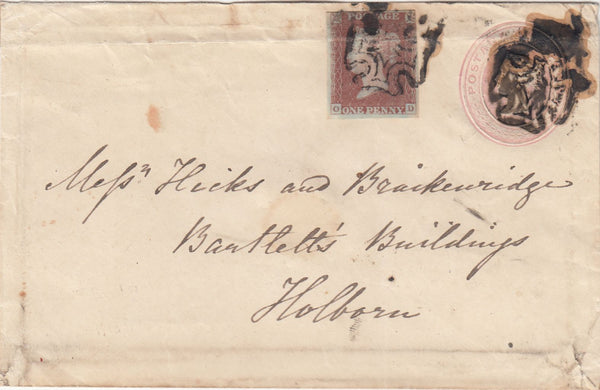 POSTAGE
ONE PENNY
C D
POSTA
Messrs Hicks and Brackenridge
Bartlett's Buildings
Holborn